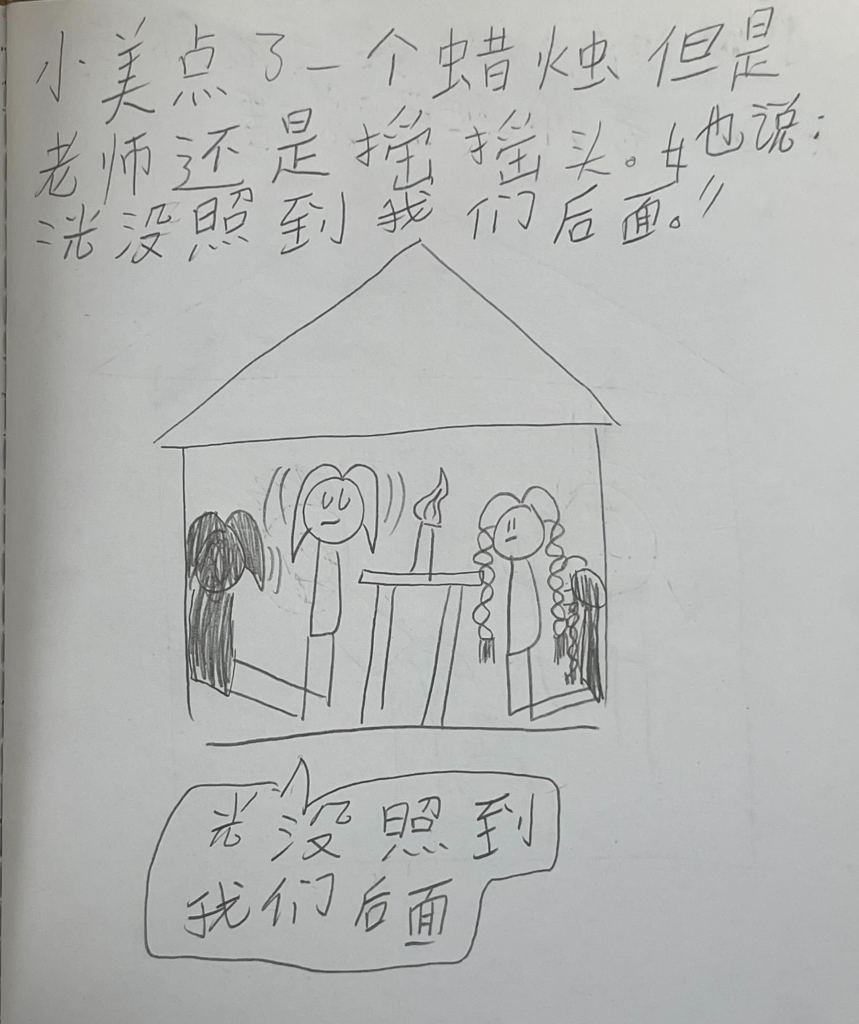 小美点了一个蜡烛但是
老师还是摇摇头。她说:
"光没照到我们后面。"
光没照到
我们后面